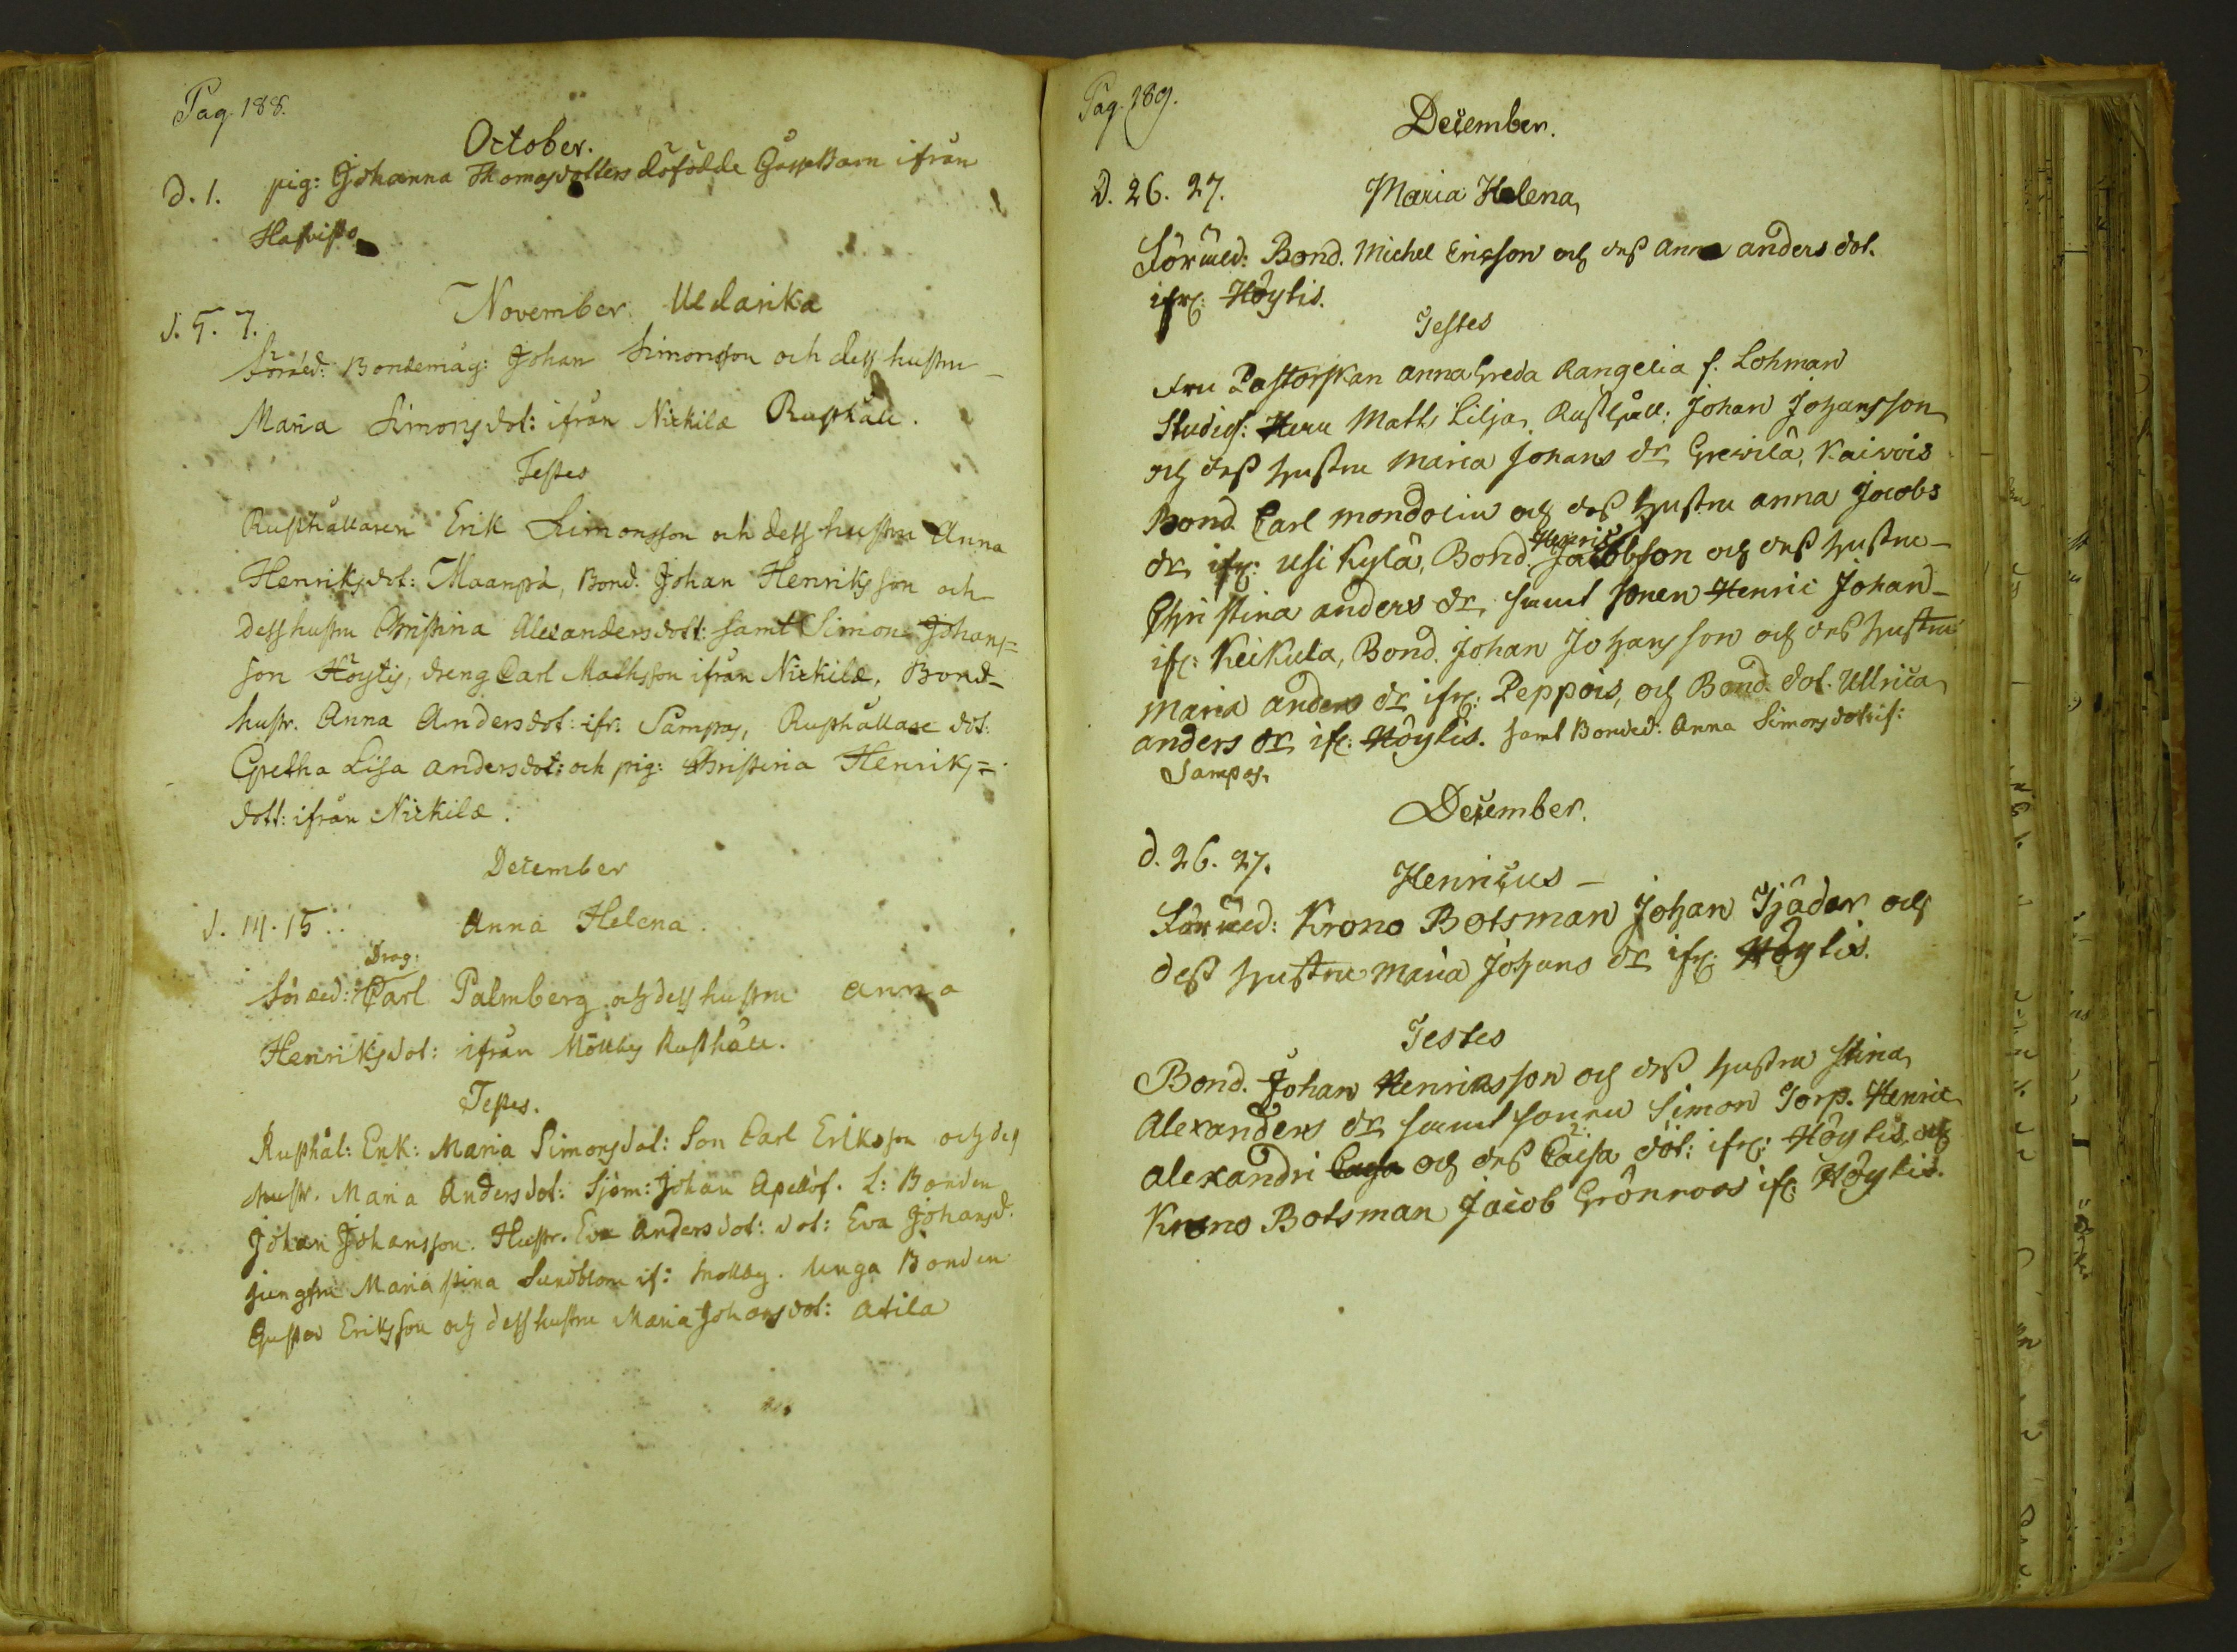 Pag. 188.
October.
d. 1. pig: Johanna Thomasdotters döfödde Gåsse Barn ifrån
Hasvisto
November. Uldarika
d. 5. 7.
Föräld: Bondemåg: Johan Simonsson och dess hustru
Maria Simonsdot: ifrån Nickilä Rusthåll.
Testes
Rusthållaren Erik Simonsson och dess hustru Anna
Henriksdot: Maanpä, Bond. Johan Henriksson och
dess hustru Christina Alexandersdott: samt Simon Johans=
son Höytis, dreng Carl Mathsson ifrån Nickilä, Bond-
hustr. Anna Andersdot: ifr: Sampas, Rusthållare dot:
Gretha Lisa andersdot: och pig: Christina Henriks=
dott: ifrån Nickilä.
December
d. 14. 15. Anna Helena.
Drag:
Föräld: Carl Palmberg och dess hustru anna
Henriksdot: ifrån Möllby Rusthåll.
Testes.
Rusthål: Enk: Maria Simonsdot: Son Carl Eriksson och des
hustr. Maria Andersdot: Sjöm: Johan Apellöf. L: Bonden
Johan Johansson. Hustr. Eva Andersdot: dot: Eva Johansd.
jungfru Maria stina Sundblom if: Mollby. Unga Bonden
Gustav Eriksson och dess hustru Maria Johansdot: Atila
Pag. 189.
December.
d. 26. 27. Maria Helena,
Föräld: Bond. Michel Ericson och dess Anna anders dot.
ifr: Höytis.
Testes
Fru Pastorskan anna Greda Rangelia f. Lohman
Studios: Herr Math. Lilja, Rusthåll: Johan Johansson
och dess hustru Maria Johans dr Grevilä, Kaivois
Bond. Carl Mondolin och dess hustru anna Jacobs
Henric
dr ifr: Usi Kylä, Bond. Jacobson och dess hustru
Christina anders dr, samt sonen Henric Johan-
ifr: Keikula, Bond. Johan Johansson och dess hustru
Maria anders dr ifr: Peppois, och Bond. dot. Ullrica
anders dr ifr: Höytis. samt Bonded: Anna Simonsdot if:
Sampas.
December.
d. 26. 27.
Henricus
Föräld: Krono Botsman Johan Tjäder och
dess hustru Maria Johans dr ifr: Höytis.
Testes
Bond. Johan Henricsson och dess hustru Stina
Alexanders dr samt sonen Simon Torp. Henric
Alexandri Casa och dess Caisa dot: ifr: Höytis och
Krono Botsman Jacob Grönroos ifr: Höytis.